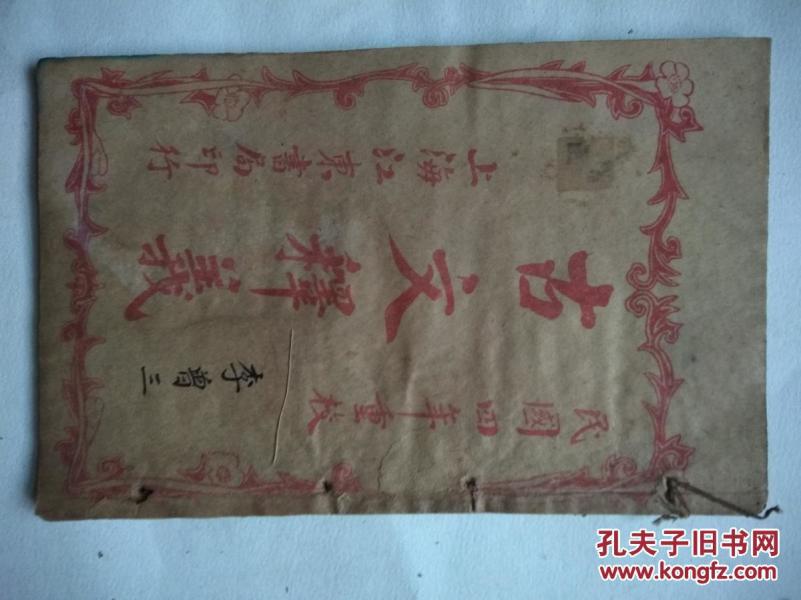 民國四年重校
古文釋義
李曾三
上海江東書局印行
孔夫子旧书网
www.kongfz.com